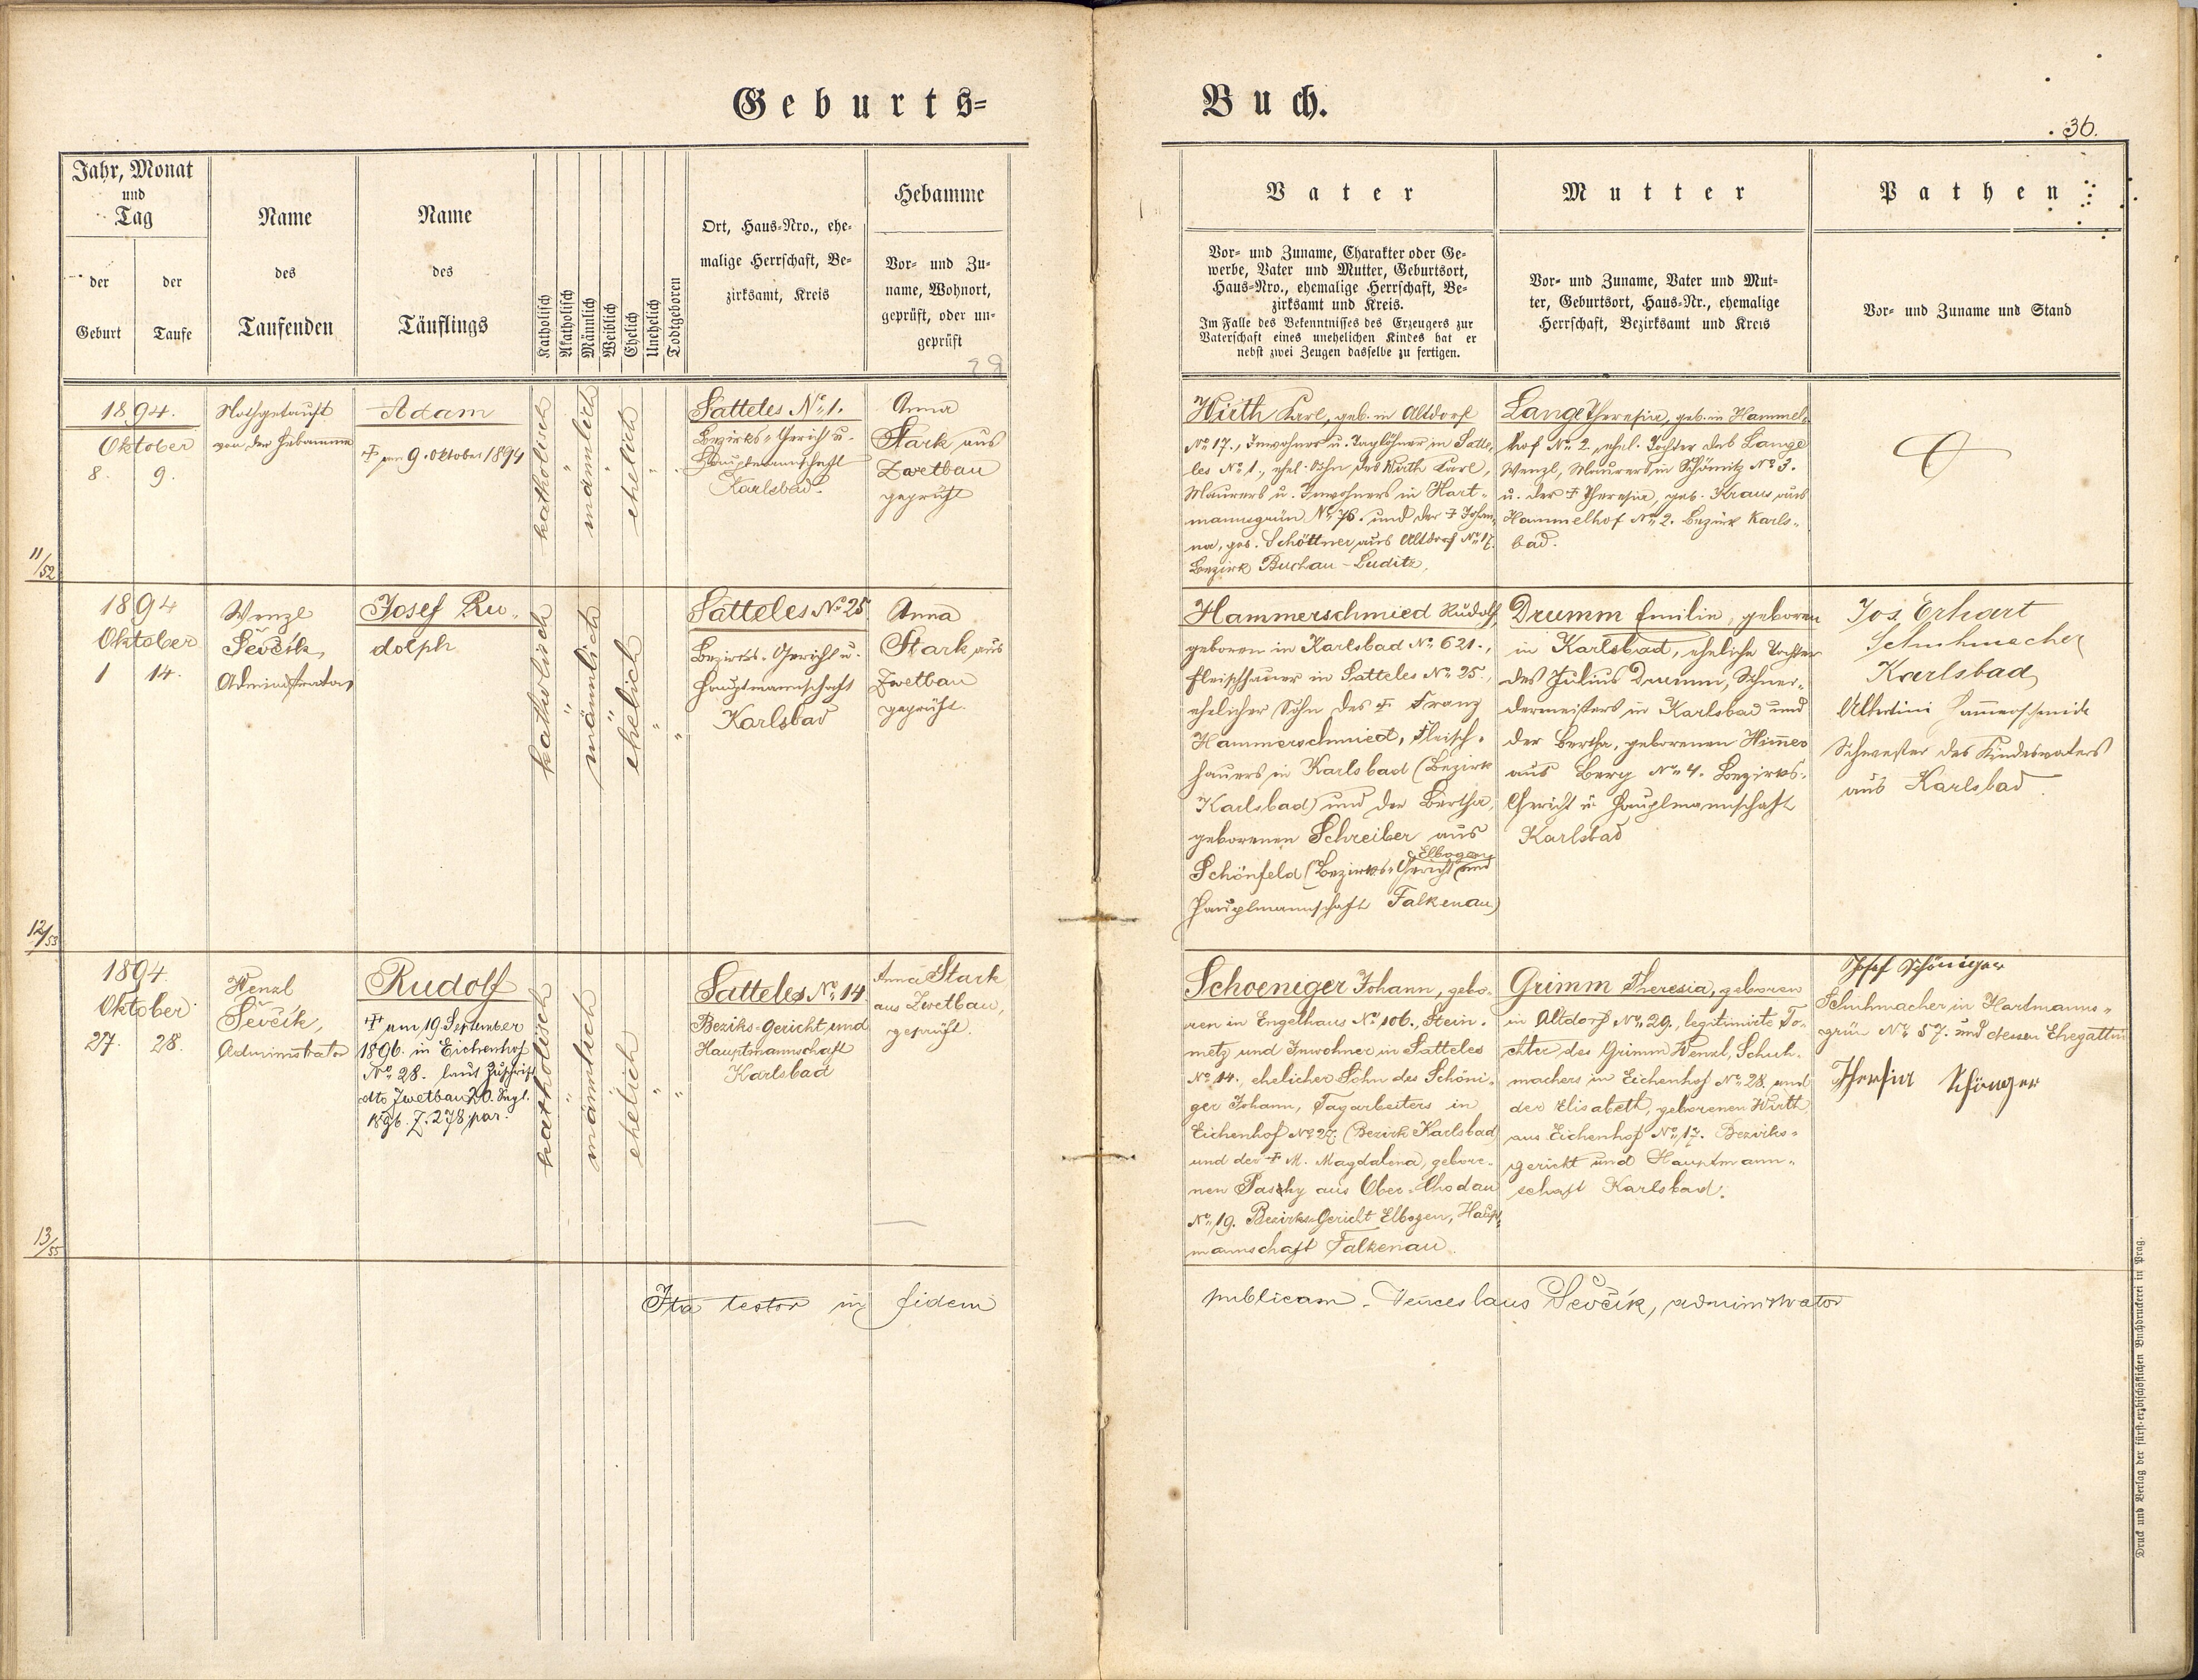 Geburts=
Buch.
36.
Jahr, Monat
und
Tag
der
Geburt
der
Taufe
Name
des
Taufenden
Name
des
Täuflings
Katholisch
Akatholisch
Männlich
Weiblich
Ehelich
Unehelich
Todtgeboren
Ort, Haus=Nro., ehe=
malige Herrschaft, Be=
zirksamt, Kreis
Hebamme
Vor= und Zu=
name, Wohnort,
geprüft, oder un=
geprüft
Vater
Vor= und Zuname, Charakter oder Ge=
werbe, Vater und Mutter, Geburtsort,
Haus=Nro., ehemalige Herrschaft, Be=
zirksamt und Kreis.
Im Falle des Bekenntnisses des Erzeugers zur
Vaterschaft eines unehelichen Kindes hat er
nebst zwei Zeugen dasselbe zu fertigen.
Mutter
Vor= und Zuname, Vater und Mut=
ter, Geburtsort, Haus=Nr., ehemalige
Herrschaft, Bezirksamt und Kreis
Pathen
Vor= und Zuname und Stand
11/52
1894.
Oktober
8. 9.
Nothgetauft
von der Hebamme
Adam
† am 9. Oktober 1894
katholisch
"
männlich
"
ehelich
"
"
Satteles No. 1.
Bezirks=Gericht u.
Hauptmannschaft
Karlsbad.
Anna
Stark aus
Zwetbau
geprüft
Wirth Karl, geb. in Altdorf
No 17., Inwohner u. Taglöhner in Satte=
les No 1., ehel. Sohn des Wirth Karl,
Maurers u. Inwohners in Hart=
mannsgrün No 76. und der † Johan=
na, geb. Schöttner aus Altdorf No 17.
Bezirk Buchau - Luditz.
Lange Theresia, geb. in Hammel=
hof No 2., ehel. Tochter des Lange
Wenzl, Maurers in Schömitz No 3.
u. der † Theresia, geb. Kraus aus
Hammelhof No 2. Bezirk Karls=
bad.
12/53
1894
Oktober
1 14.
Wenzl
Ševčík,
Administrator
Josef Ru=
dolph
katholisch
"
männlich
"
ehelich
"
"
Satteles No 25
Bezirks=Gericht u.
Hauptmannschaft
Karlsbad
Anna
Stark aus
Zwetbau
geprüft.
Hammerschmied Rudolf,
geboren in Karlsbad No 621.,
Fleischhauer in Satteles No 25.,
ehelicher Sohn des † Franz
Hammerschmied, Fleisch=
hauers in Karlsbad (Bezirk
Karlsbad) und der Bertha,
geborenen Schreiber aus
Elbogen
Schönfeld (Bezirks=Gericht und
Hauptmannschaft Falkenau)
Drumm Emilie, geboren
in Karlsbad, eheliche Tochter
des Julius Drumm, Schnei=
dermeisters in Karlsbad und
der Bertha, geborenen Himmer
aus Berg No 4. Bezirks=
Gericht u. Hauptmannschaft
Karlsbad
Jos. Erhart
Schuhmacher
Karlsbad
Albertini Hammerschmidt
Schwester des Kindesvaters
aus Karlsbad.
13/55
1894
Oktober
27. 28.
Wenzl
Ševčík,
Administrator
Rudolf
† am 19 September
1896. in Eichenhof
No 28. laut Zuschrift
dto Zwetbau 20. Sept.
1896. Z. 278 par.
katholisch
"
männlich
ehelich
"
"
Satteles No. 14
Bezirks=Gericht und
Hauptmannschaft
Karlsbad
Anna Stark
aus Zwetbau,
geprüft.
Schoeniger Johann, gebo=
ren in Engelhaus No 106., Stein=
metz und Inwohner in Satteles
No 14., ehelicher Sohn des Schöni=
ger Johann, Tagarbeiters in
Eichenhof No 27. (Bezirk Karlsbad)
und der † M. Magdalena, gebore=
nen Paschy aus Ober=Chodau
No 19. Bezirks=Gericht Elbogen, Haupt=
mannschaft Falkenau.
Grimm Theresia, geboren
in Altdorf No 29., legitimirte To=
chter des Grimm Wenzl, Schuh=
machers in Eichenhof No 28 und
der Elisabeth, geborenen Wirth
aus Eichenhof No 17. Bezirks=
gericht und Hauptmann=
schaft Karlsbad.
Josef Schöniger
Schuhmacher in Hartmanns=
grün No 57. und dessen Ehegattin
Thresia Schöniger
Ita testor in fidem publicam. Venceslaus Ševčík, administrator
Druck und Verlag der fürst=erzbischöflichen Buchdruckerei in Prag.